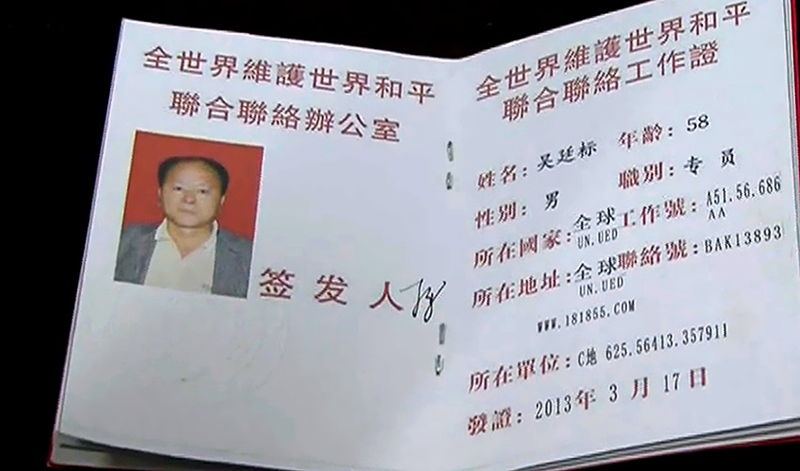 全世界維護世界和平
聯合聯絡辦公室
签发人
全世界維護世界和平
聯合聯絡工作證
姓名：吴廷标 年齡：58
性别：男 職别：专员
所在國家：全球 工作號：A51.56.686
UN.UED AA
所在地址：全球 聯絡號：BAK13893
UN.UED
WWW.181855.COM
所在單位：C地 625.56413.357911
發證：2013年3月17日